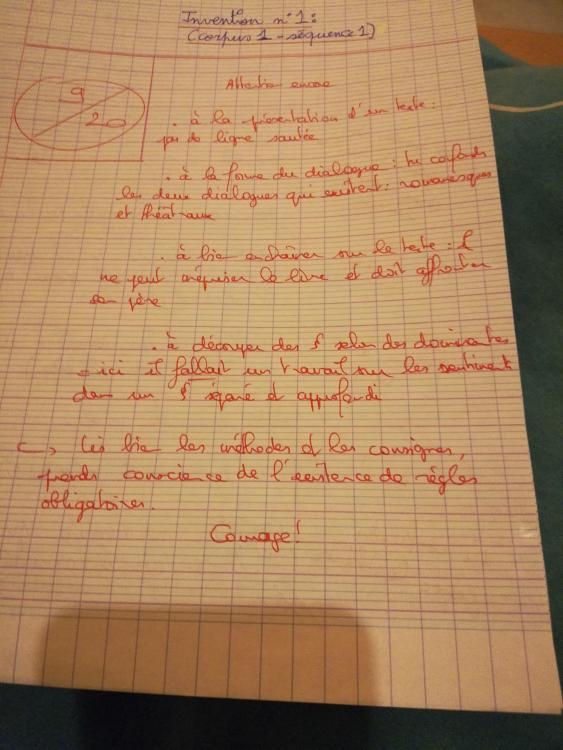 Invention n°1:
(corpus 1 - séquence 1)
9
20
Attention encore
. à la présentation d'un texte :
pas de ligne sautée
. à la forme du dialogue : tu confonds
les deux dialogues qui existent : romanesques
et théâtraux
. à bien enchaîner sur le texte : il
ne peut mépriser le livre et doit affronter
son père
. à découper des § selon des dominantes
= ici il fallait un travail sur les sentiments
dans un § séparé et approfondi
Lis bien les méthodes et les consignes,
prends conscience de l'existence de règles
obligatoires.
Courage !